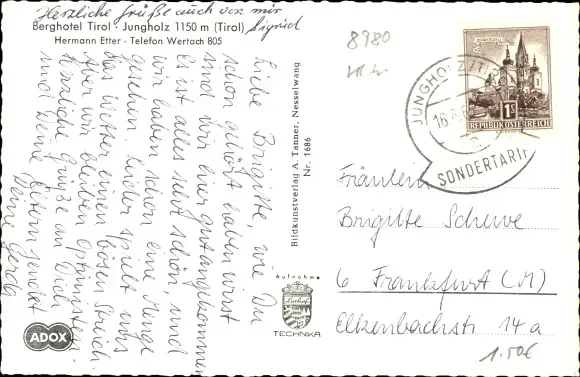 Herzliche Grüße auch von mir
Sigrid
Berghotel Tirol · Jungholz 1150 m (Tirol)
Hermann Etter · Telefon Wertach 805
Liebe Brigitte, wie Du
schon gehört haben wirst
sind wir hier gut angekommen
Es ist alles sehr schön, und
wir haben schon eine Menge
gesehen. Leider spielt uns
das Wetter einen bösen Streich.
Aber wir bleiben Optimisten.
Herzliche Grüße an Dich
und Deine Eltern sendet
Deine Gerda
ADOX
Bildkunstverlag A. Tanner, Nesselwang
Nr. 1686
Aufnahme
Linhof
TECHNIKA
8980
JUNGHOLZ/TIROL
16.8.
SONDERTARIF
MARIAZELL
1S
REPUBLIK ÖSTERREICH
Fräulein
Brigitte Schewe
6 Frankfurt (M)
Elkenbachstr 14a
1.50€